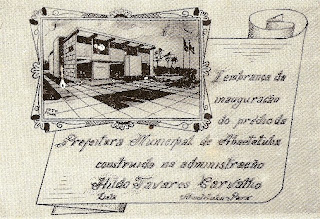 Lembrança da
inauguração
do prédio da
Prefeitura Municipal de Abaetetuba
construido na administração
Hildo Tavares Carvalho
Abaetetuba Pará